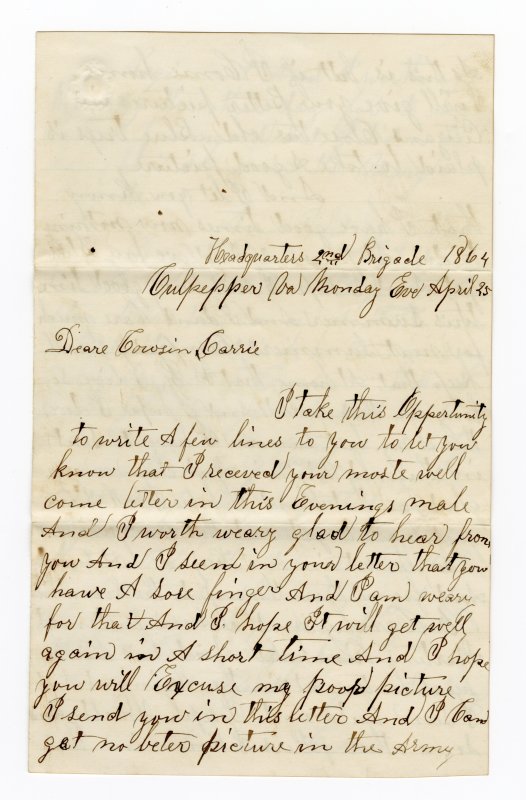 Headquarters 2nd Brigade 1864
Culpepper Va Monday Eve April 25
Deare Cowsin Carrie
I take this Oppertunity
to write A few lines to you to let you
know that I receved your moste well
come letter in this Evenings male
And I worth weary glad to hear from
you And I seen in your letter that you
hawe A sore finger And I am weary
for that And I hope It will get well
again in A short time And I hope
you will Excuse my poor picture
I send you in this letter And I Can
get no beter picture in the Army